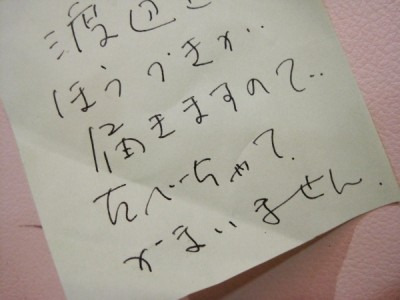 渡辺
ほうづきが..
届きますので..
たべちゃて.
かまいません.